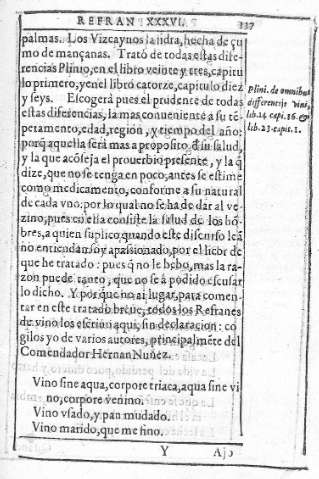 REFRAN XXXVI.
337
palmas. Los Vizcaynos la sidra, hecha de çu
mo de mançanas. Trató de todas estas dife-
rencias Plinio, en el libro veinte y tres, capitu
lo primero, y en el libro catorze, capitulo diez
y seys. Escogerà pues el prudente de todas
estas diferencias, la mas conueniente a su tẽ
peramento, edad, region, y tiempo del año:
porq̃ aquella serà mas a proposito de su salud,
y la que acõseja el prouerbio presente, y la q̃
dize, que no se tenga en poco, antes se estime
como medicamento, conforme a su natural
de cada vno: por lo qual no se ha de dar al ve-
zino, pues en ella consiste la salud de los hõ-
bres, a quien suplico, quando este discurso leã
no entiendan soy apassionado, por el licor de
que he tratado: pues q̃ no le bebo, mas la ra-
zon puede tanto, que no se à podido escusar
lo dicho. Y porque no ai lugar, para comen-
tar en este tratado breue, todos los Refranes
de vino los escriui aqui, sin declaracion: co
gilos yo de varios autores, principalmẽte del
Comendador Hernan Nuñez.
Vino sine aqua, corpore triaca, aqua sine vi
no, corpore venino.
Vino vsado, y pan mudado.
Vino marido, que me fino.
Y Ajo
Plini. de omnibus
differentijs vini,
lib. 14. capi. 16. &
lib. 23. capit. 1.